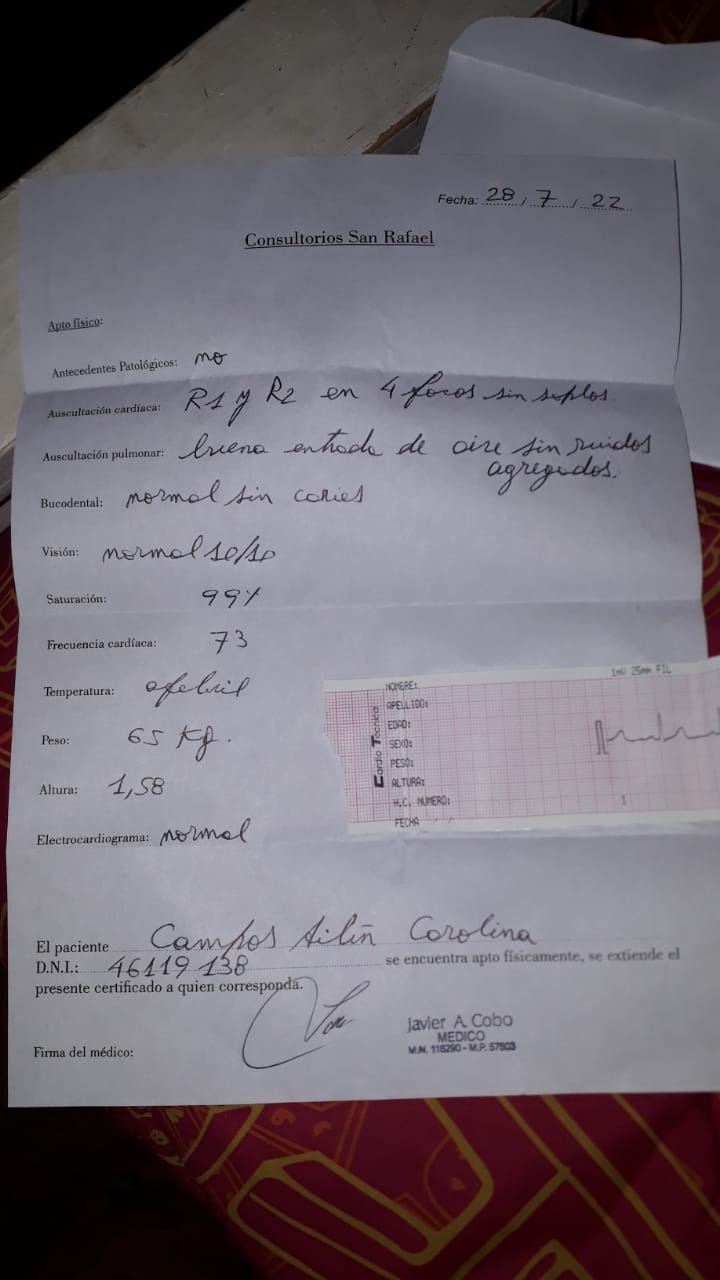 Fecha: 28 / 7 / 22
Consultorios San Rafael
Apto físico:
Antecedentes Patológicos: no
Auscultación cardíaca: R1 y R2 en 4 focos sin soplos.
Auscultación pulmonar: buena entrada de aire sin ruidos
agregados.
Bucodental: normal sin caries
Visión: normal 10/10
Saturación: 99%
Frecuencia cardíaca: 73
Temperatura: afebril
Peso: 65 Kg.
Altura: 1,58
Electrocardiograma: normal
1mV 25mm FIL
Cardio Tecnica
NOMBRE:
APELLIDO:
EDAD:
SEXO:
PESO:
ALTURA:
H.C. NUMERO:
FECHA
1
El paciente Campos Ailín Carolina
D.N.I.: 46119138 se encuentra apto físicamente, se extiende el
presente certificado a quien corresponda.
Javier A. Cobo
MEDICO
M.N. 115290 - M.P. 57603
Firma del médico: